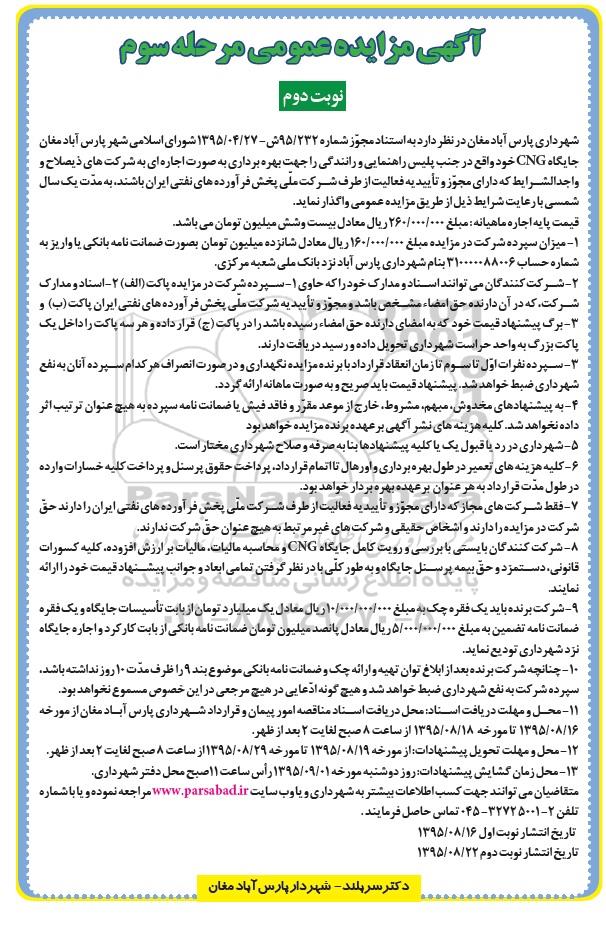 آگهی مزایده عمومی مرحله سوم
نوبت دوم
شهرداری پارس آباد مغان در نظر دارد به استناد مجوّز شماره ۹۵/۲۳۲ش-۱۳۹۵/۰۴/۲۷ شورای اسلامی شهر پارس آباد مغان
جایگاه CNG خود واقع در جنب پلیس راهنمایی و رانندگی را جهت بهره برداری به صورت اجاره ای به شرکت های ذیصلاح و
واجدالشرایط که دارای مجوّز و تأییدیه فعالیت از طرف شرکت ملّی پخش فرآورده های نفتی ایران باشند، به مدّت یک سال
شمسی با رعایت شرایط ذیل از طریق مزایده عمومی واگذار نماید.
قیمت پایه اجاره ماهیانه: مبلغ ۲۶۰/۰۰۰/۰۰۰ ریال معادل بیست وشش میلیون تومان می باشد.
۱- میزان سپرده شرکت در مزایده مبلغ ۱۶۰/۰۰۰/۰۰۰ ریال معادل شانزده میلیون تومان بصورت ضمانت نامه بانکی یا واریز به
شماره حساب ۳۱۰۰۰۰۰۸۸۰۰۶ بنام شهرداری پارس آباد نزد بانک ملی شعبه مرکزی.
۲- شرکت کنندگان می توانند اسناد و مدارک خود را که حاوی ۱- سپرده شرکت در مزایده پاکت (الف) ۲- اسناد و مدارک
شرکت، که در آن دارنده حق امضاء مشخص باشد و مجوّز و تأییدیه شرکت ملّی پخش فرآورده های نفتی ایران پاکت (ب) و
۳- برگ پیشنهاد قیمت خود که به امضای دارنده حق امضاء رسیده باشد را در پاکت (ج) قرار داده و هر سه پاکت را داخل یک
پاکت بزرگ به واحد حراست شهرداری تحویل داده و رسید دریافت دارند.
۳- سپرده نفرات اوّل تا سوم تا زمان انعقاد قرارداد با برنده مزایده نگهداری و در صورت انصراف هر کدام سپرده آنان به نفع
شهرداری ضبط خواهد شد. پیشنهاد قیمت باید صریح و به صورت ماهانه ارائه گردد.
۴- به پیشنهادهای مخدوش، مبهم، مشروط، خارج از موعد مقرّر و فاقد فیش یا ضمانت نامه سپرده به هیچ عنوان ترتیب اثر
داده نخواهد شد. کلیه هزینه های نشر آگهی بر عهده برنده مزایده خواهد بود
۵- شهرداری در رد یا قبول یک یا کلیه پیشنهادها بنا به صرفه و صلاح شهرداری مختار است.
۶- کلیه هزینه های تعمیر در طول بهره برداری و اورهال تا اتمام قرارداد، پرداخت حقوق پرسنل و پرداخت کلیه خسارات وارده
در طول مدّت قرارداد به هر عنوان بر عهده بهره بردار خواهد بود.
۷- فقط شرکت های مجاز که دارای مجوّز و تأییدیه فعالیت از طرف شرکت ملّی پخش فرآورده های نفتی ایران را دارند حقّ
شرکت در مزایده را دارند و اشخاص حقیقی و شرکت های غیر مرتبط به هیچ عنوان حقّ شرکت ندارند.
۸- شرکت کنندگان بایستی با بررسی و رویت کامل جایگاه CNG و محاسبه مالیات، مالیات بر ارزش افزوده، کلیه کسورات
قانونی، دستمزد و حقّ بیمه پرسنل جایگاه و به طور کلّی با در نظر گرفتن تمامی ابعاد و جوانب پیشنهاد قیمت خود را ارائه
نمایند.
۹- شرکت برنده باید یک فقره چک به مبلغ ۱۰/۰۰۰/۰۰۰/۰۰۰ ریال معادل یک میلیارد تومان از بابت تأسیسات جایگاه و یک فقره
ضمانت نامه تضمین به مبلغ ۵/۰۰۰/۰۰۰/۰۰۰ ریال معادل پانصد میلیون تومان ضمانت نامه بانکی از بابت کارکرد و اجاره جایگاه
نزد شهرداری تودیع نماید.
۱۰- چنانچه شرکت برنده بعد از ابلاغ توان تهیه و ارائه چک و ضمانت نامه بانکی موضوع بند ۹ را ظرف مدّت ۱۰ روز نداشته باشد،
سپرده شرکت به نفع شهرداری ضبط خواهد شد و هیچ گونه ادّعایی در هیچ مرجعی در این خصوص مسموع نخواهد بود.
۱۱- محل و مهلت دریافت اسناد: محل دریافت اسناد مناقصه امور پیمان و قرارداد شهرداری پارس آباد مغان از مورخه
۱۳۹۵/۰۸/۱۶ تا مورخه ۱۳۹۵/۰۸/۱۸ از ساعت ۸ صبح لغایت ۲ بعد از ظهر.
۱۲- محل و مهلت تحویل پیشنهادات: از مورخه ۱۳۹۵/۰۸/۱۹ تا مورخه ۱۳۹۵/۰۸/۲۹ از ساعت ۸ صبح لغایت ۲ بعد از ظهر.
۱۳- محل زمان گشایش پیشنهادات: روز دوشنبه مورخه ۱۳۹۵/۰۹/۰۱ رأس ساعت ۱۱ صبح محل دفتر شهرداری.
متقاضیان می توانند جهت کسب اطلاعات بیشتر به شهرداری و یا وب سایت www.parsabad.ir مراجعه نموده و یا با شماره
تلفن ۲-۳۲۷۲۵۰۰۱-۰۴۵ تماس حاصل فرمایند.
تاریخ انتشار نوبت اول ۱۳۹۵/۰۸/۱۶
تاریخ انتشار نوبت دوم ۱۳۹۵/۰۸/۲۲
دکتر سربلند- شهردار پارس آباد مغان
ParsNamadData
پایگاه اطلاع رسانی مناقصه و مزایده